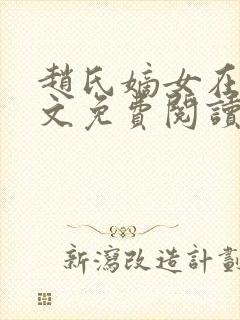 趙氏嫡女在
文免費閱讀
新瀉改造計劃